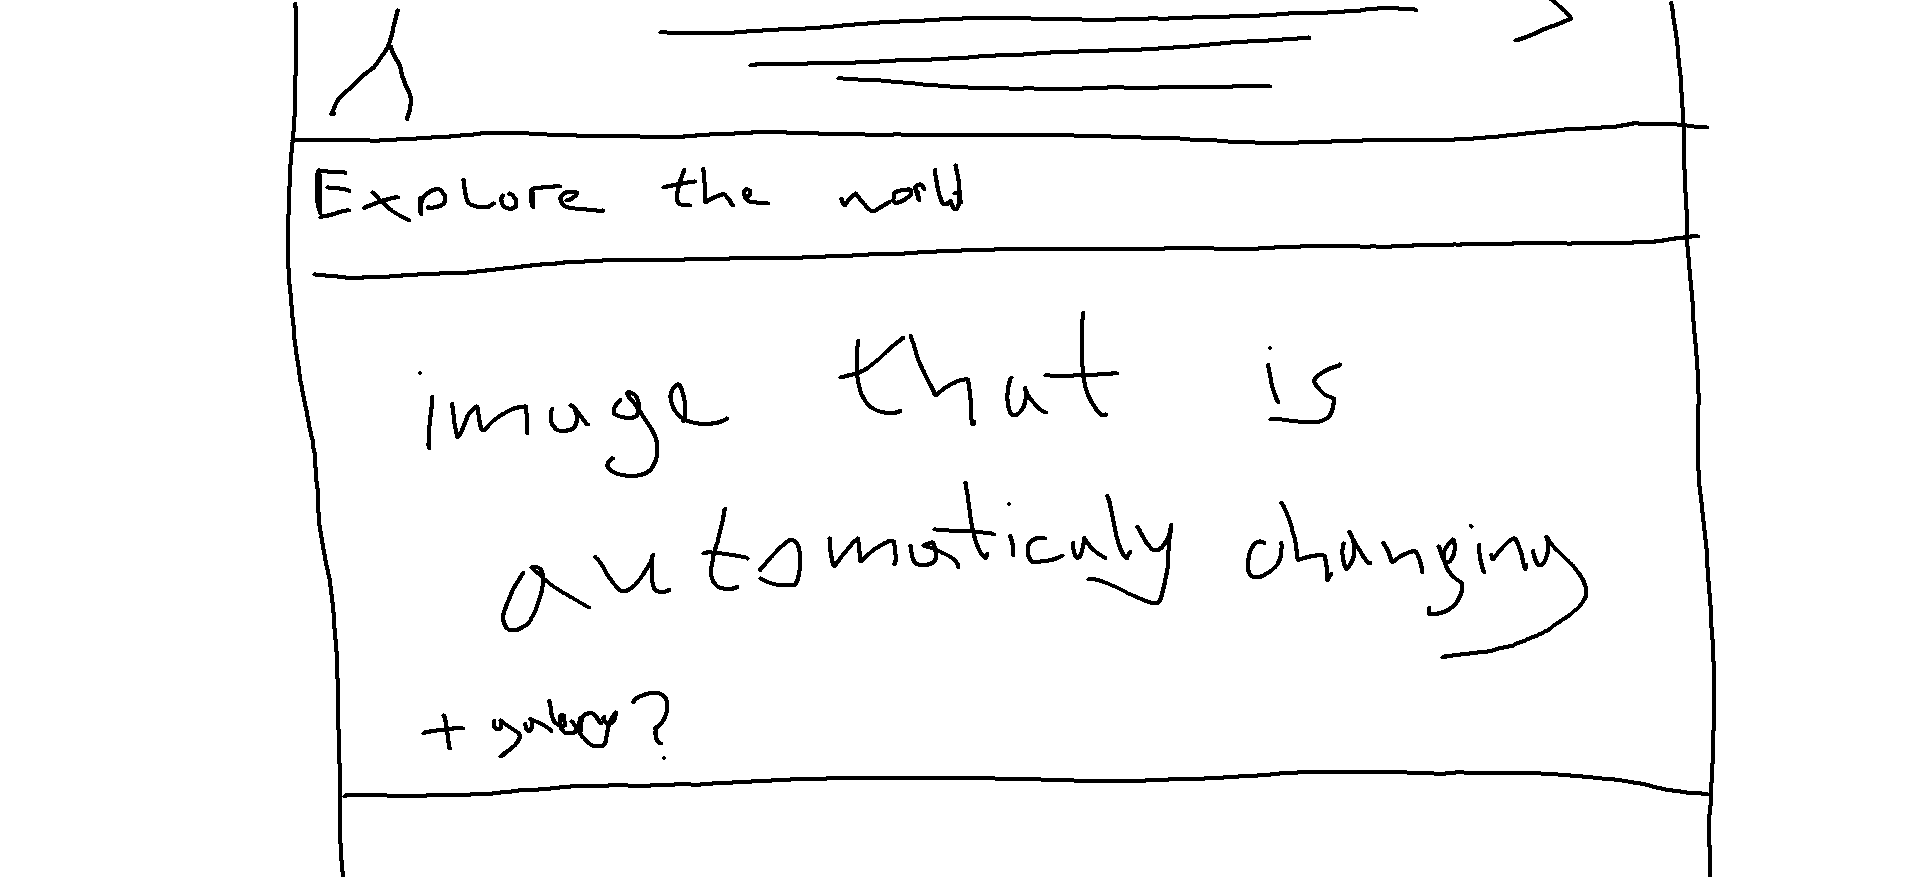 Explore the world
image that is
automaticaly changing
+ galery?